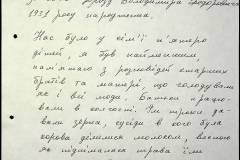 Дрозд Володимира Федоровича
1933 року народження.
Нас було у сім'ї п'ятеро
дітей, я був наймолодший,
пам'ятаю з розповідей старших
братів та матері, що голодували
як і всі люди. Батьки працю-
вали в колгоспі. Їм трохи да-
вали зерна, сусіди в кого була
корова ділились молоком, весною
як піднімалась трава їли